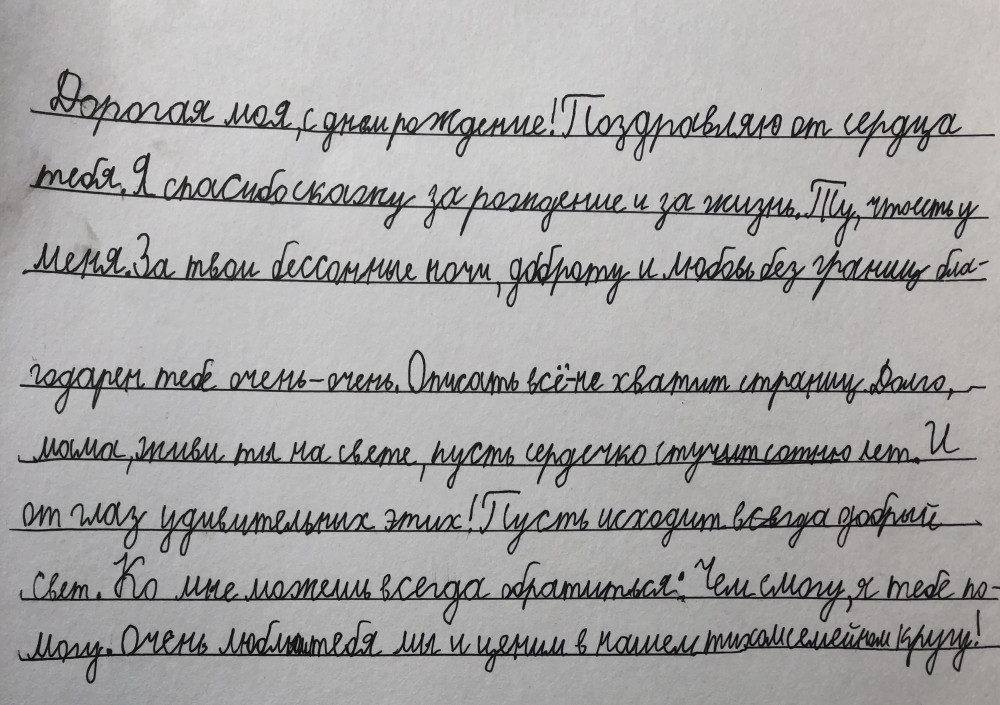 Дорогая моя, с днём рождение! Поздравляю от сердца
тебя. Я спасибо скажу за рождение и за жизнь. Ту, что есть у
меня. За твои бессонные ночи, доброту и любовь без границ бла-
годарен тебе очень-очень. Описать всё-не хватит страниц. Долго,
мама, живи ты на свете, пусть сердечко стучит сотню лет. И
от глаз удивительных этих! Пусть исходит всегда добрый
свет. Ко мне можешь всегда обратиться: Чем смогу, я тебе по-
могу. Очень любим тебя мы и ценим в нашем тихом семейном кругу!